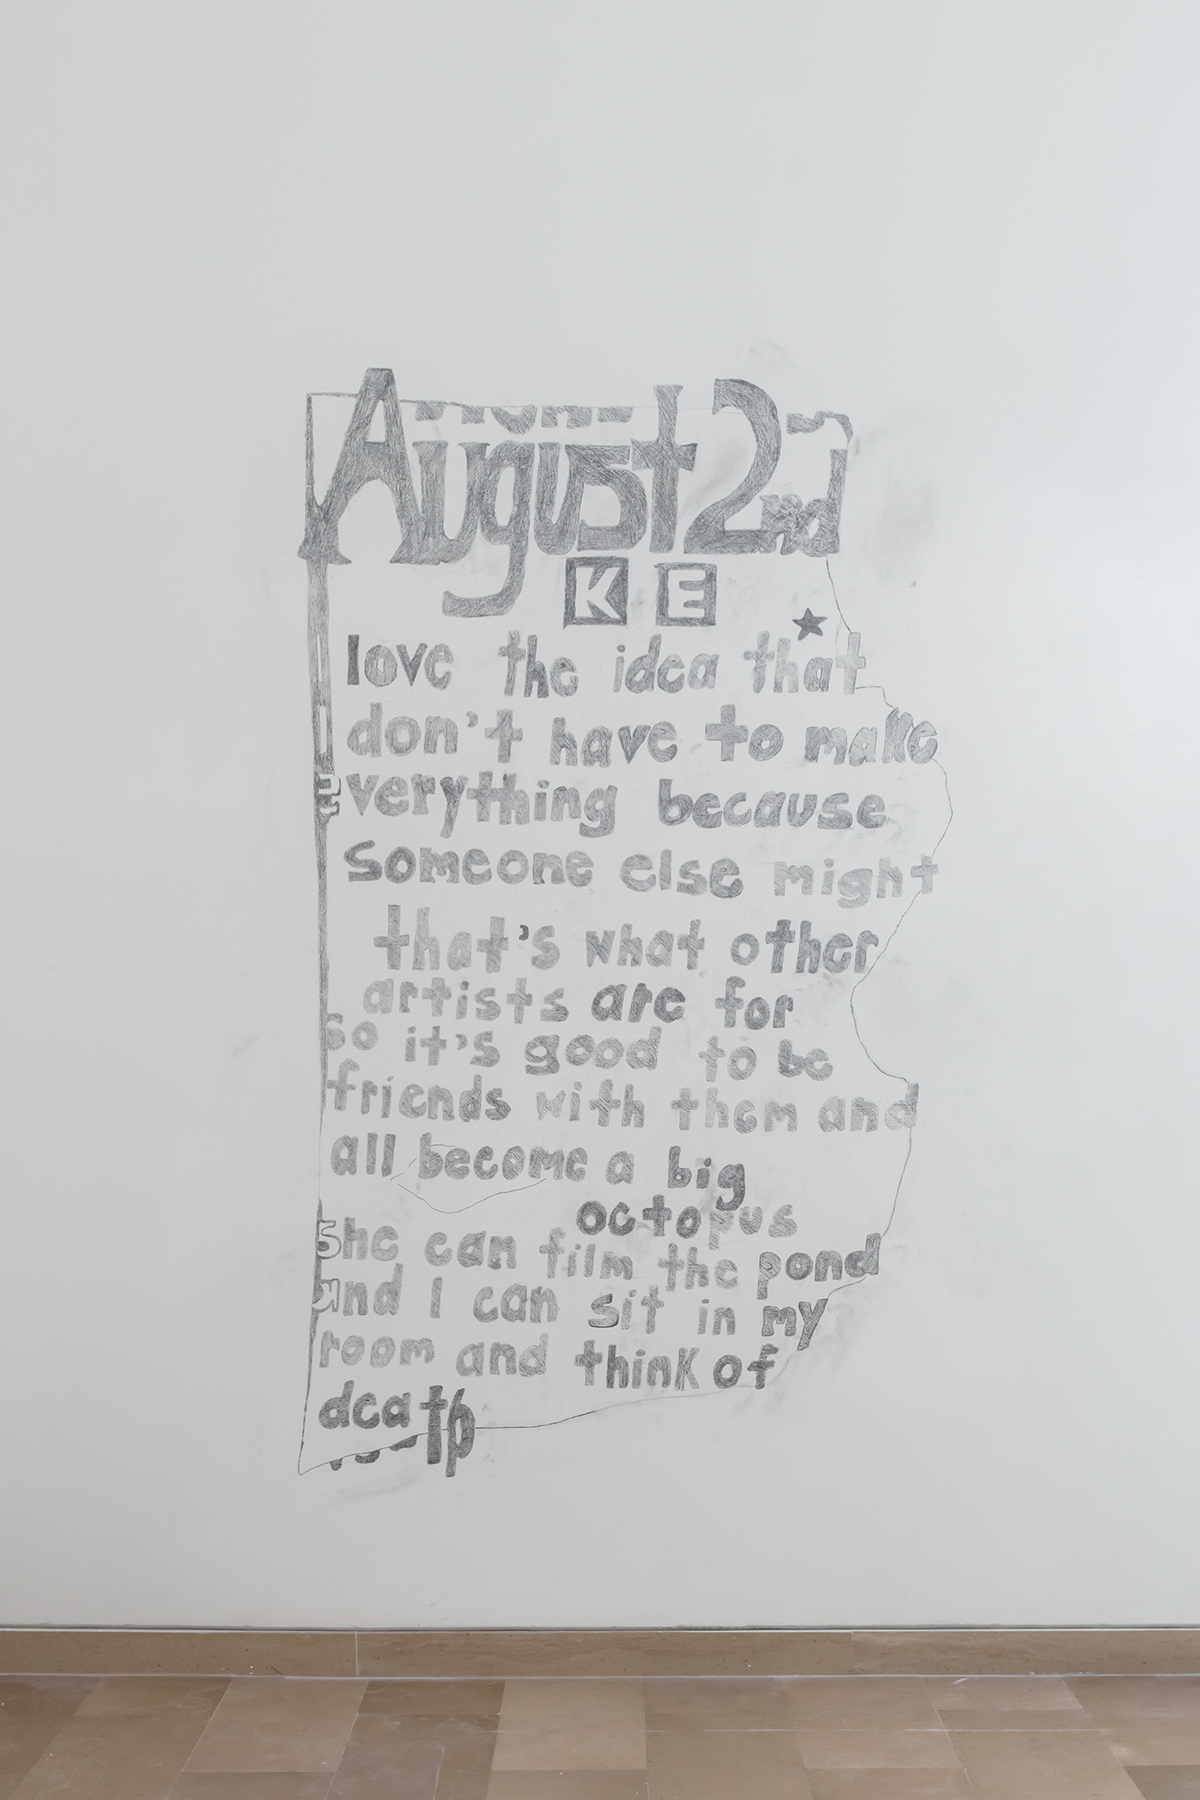 August 2nd
K E
I love the idea that
I don't have to make
everything because
someone else might
that's what other
artists are for
so it's good to be
friends with them and
all become a big
octopus
She can film the pond
and I can sit in my
room and think of
death